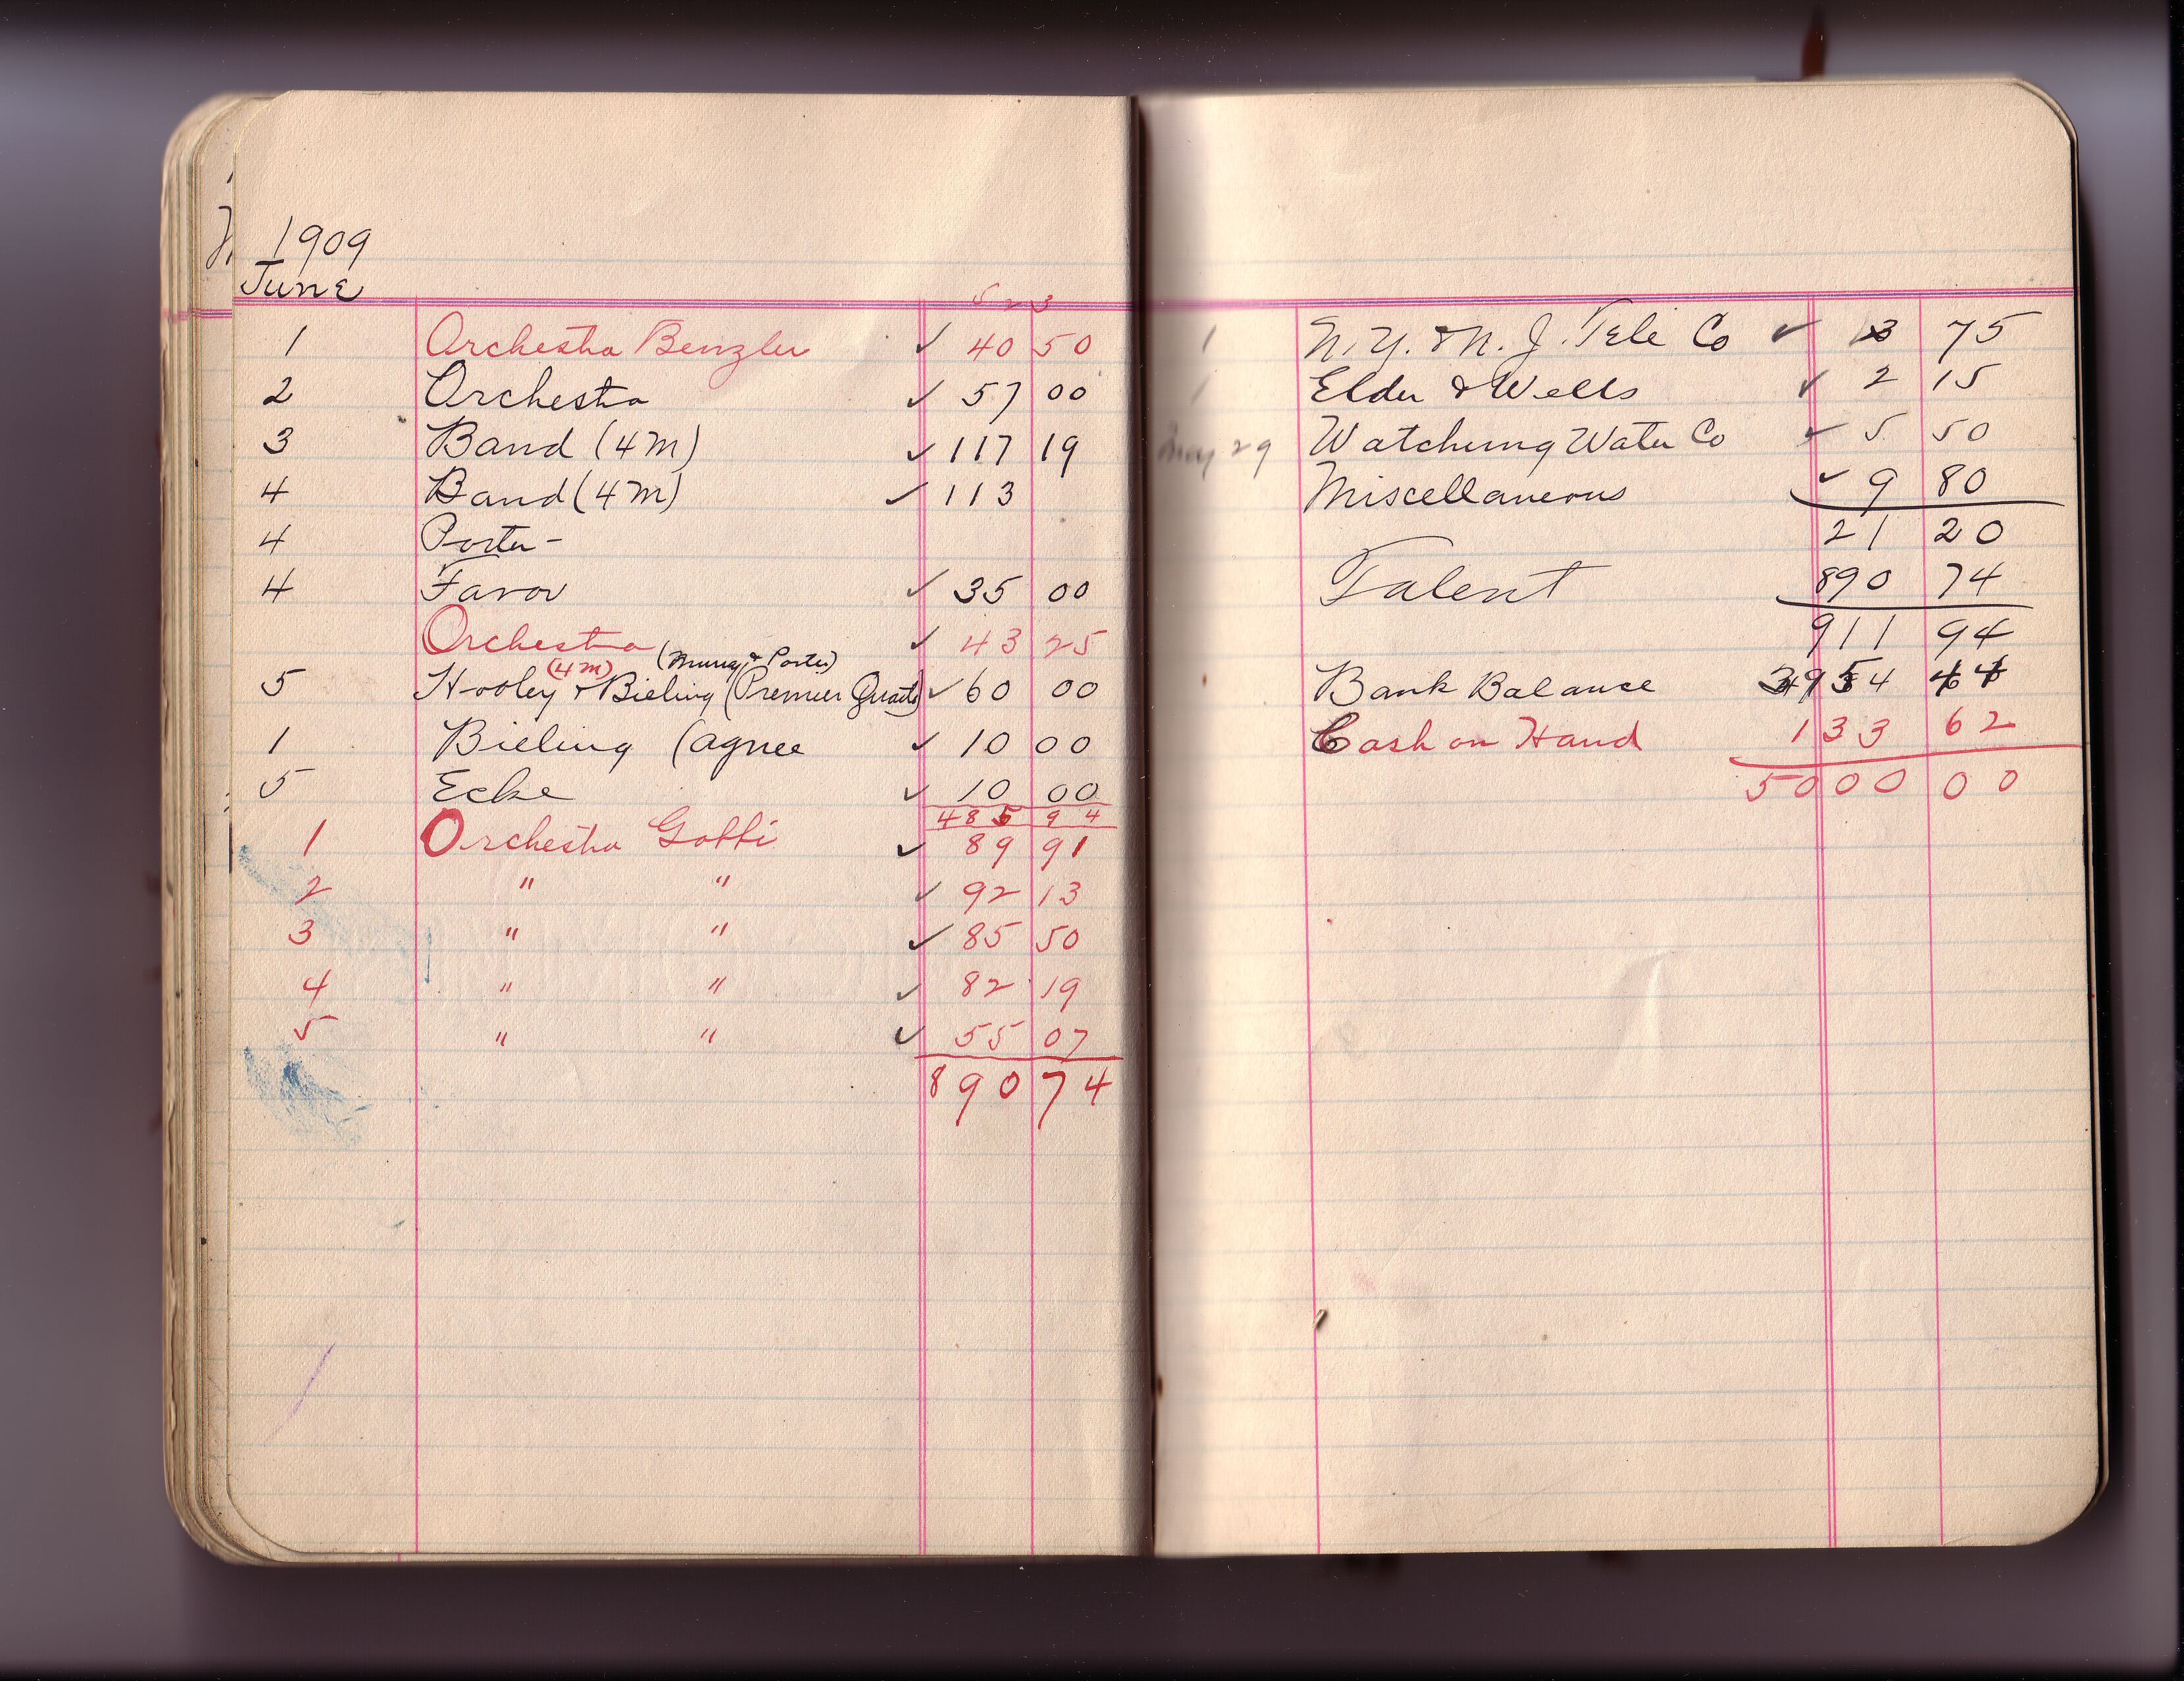 1909
June
1 Orchestra Benzler ✓ 40 50
2 Orchestra ✓ 57 00
3 Band (4M) ✓ 117 19
4 Band (4M) ✓ 113
4 Porter -
4 Favor ✓ 35 00
Orchestra ✓ 43 25
(4M) (Murray & Porter)
5 Hooley & Bieling (Premier Quarte) ✓ 60 00
1 Bieling (agnee ✓ 10 00
5 Ecke ✓ 10 00
485 94
1 Orchestra Gobbi ✓ 89 91
2 " " ✓ 92 13
3 " " ✓ 85 50
4 " " ✓ 82 19
5 " " ✓ 55 07
890 74
1 N. Y. & N. J. Tele Co ✓ 3 75
1 Elder & Wells ✓ 2 15
May 29 Watchung Water Co ✓ 5 50
Miscellaneous ✓ 9 80
21 20
Talent 890 74
911 94
Bank Balance 3954 44
Cash on Hand 133 62
5000 00